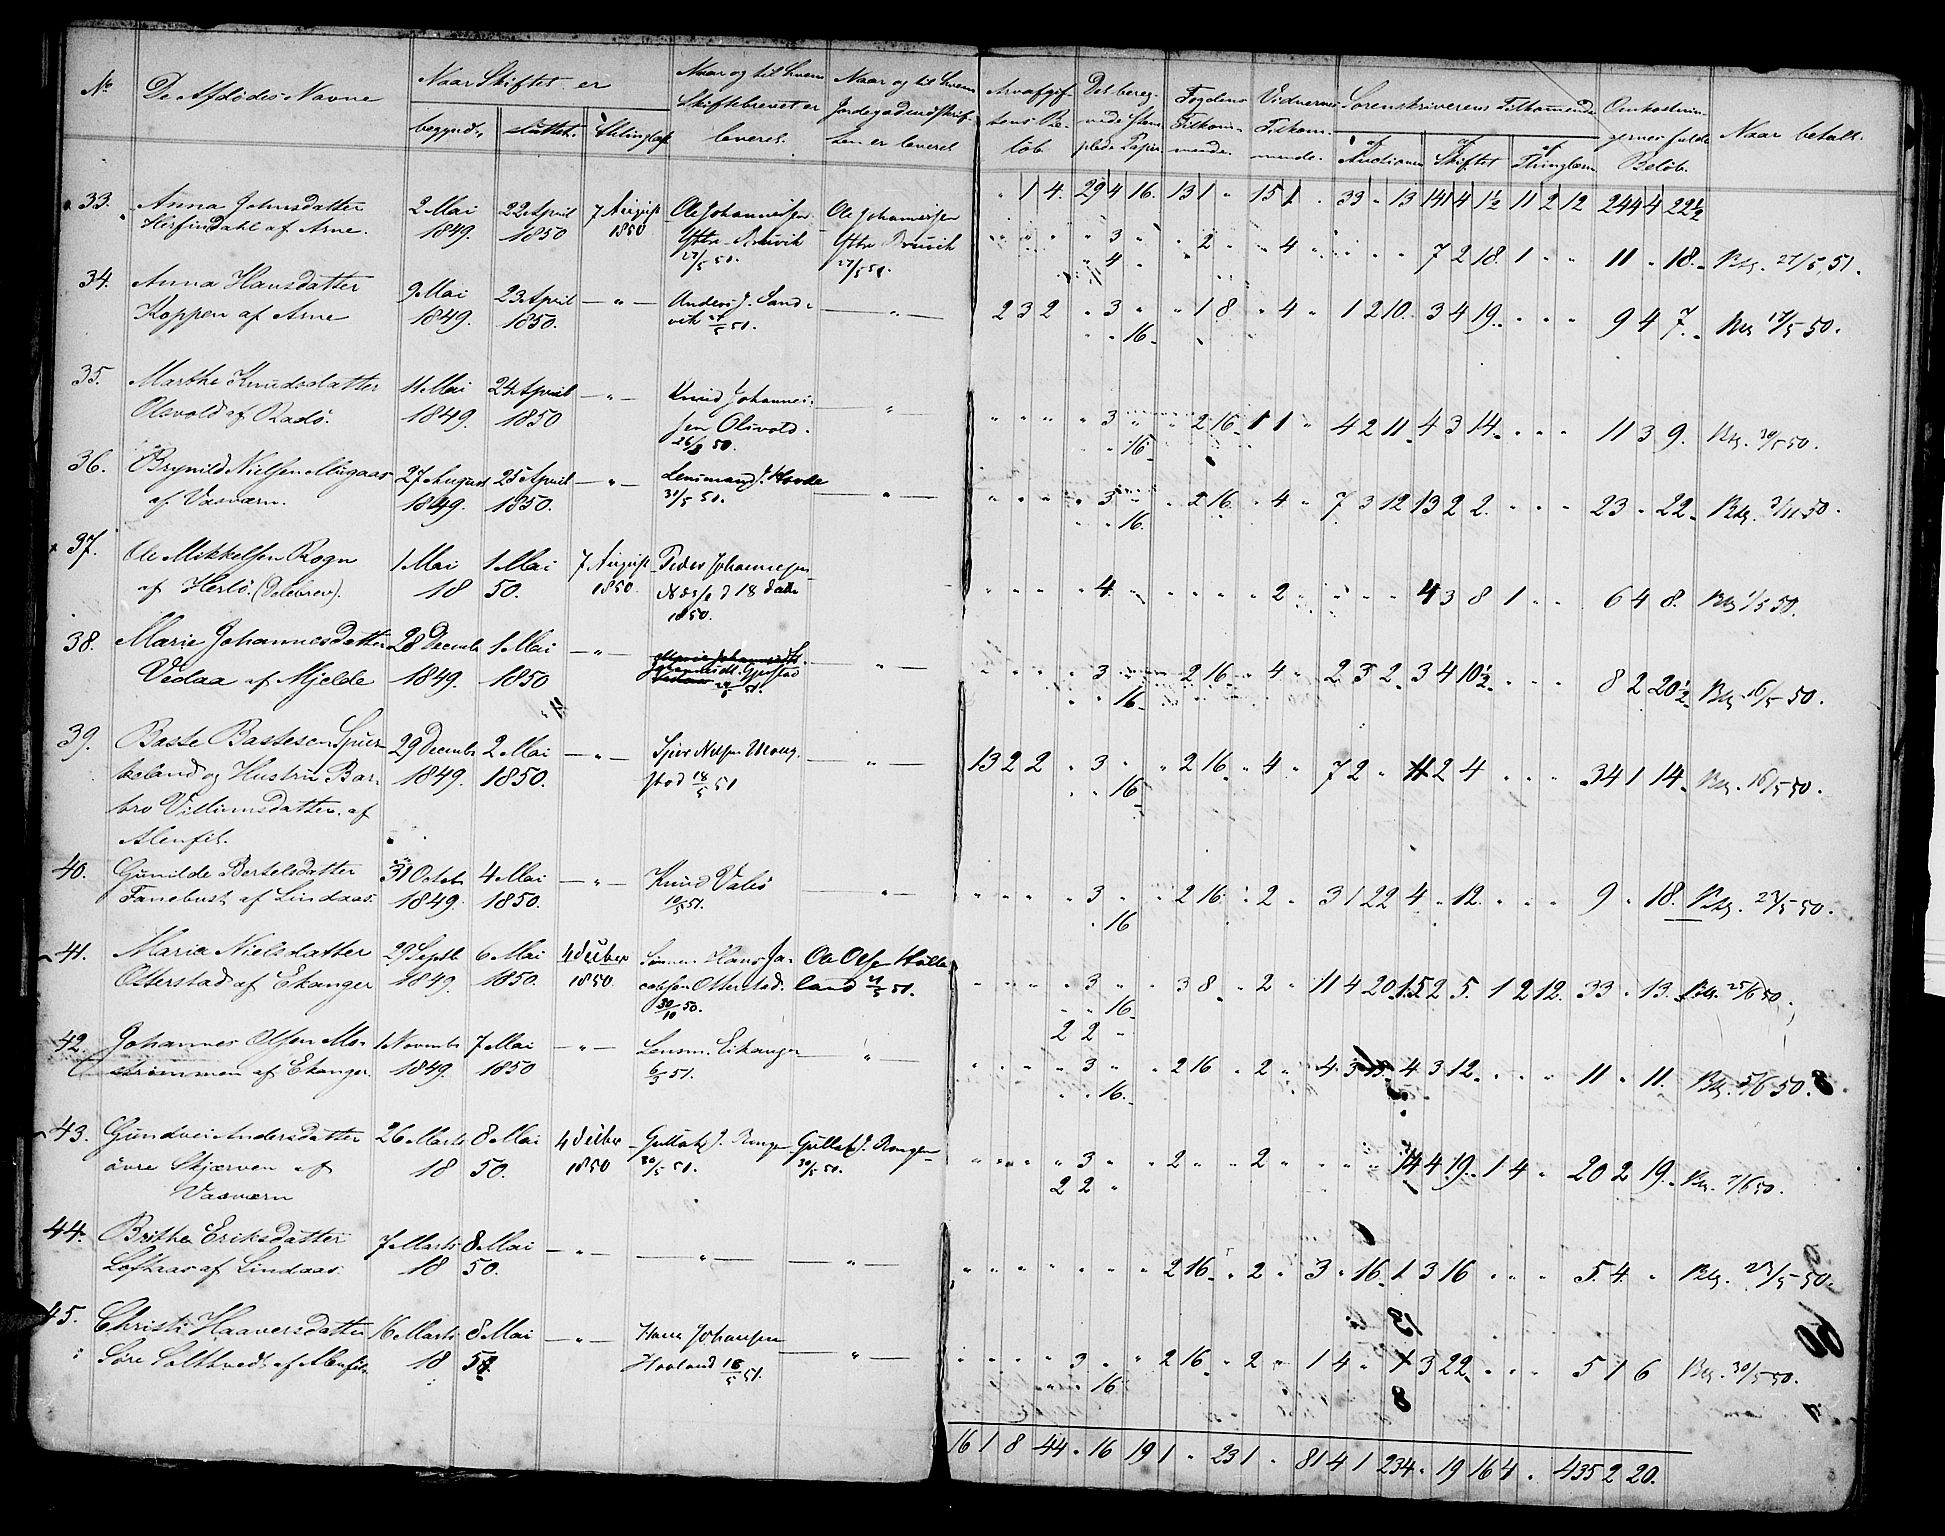 No
De Afdödes Navne
Naar Skiftet er
begyndt,
sluttet,
thinglæst
Naar og til hvem
Skiftebrevet er
leveret.
Naar og til hvem
Jordegodsudskrif-
ten er leveret
Arveafgif-
tens Be-
löb.
Det bereg-
nede Stem-
plede Papir
Fogdens
Tilkom-
mende.
Vidnernes
Tilkom-
mende.
Sorenskriverens Tilkommende
af Auctionen
af Skiftet
af Thinglæsn
Omkostnin-
gernes fulde
Belöb.
Naar betalt.
33. Anna Johnsdatter 2 Mai 22 April 7 August Ole Johannessen Ole Johannessen " 1 4. 29 4 16. 13 1 " 15 1 . 39 " 13 141 4 1½ 11 2 12 244 4 22½
Herfindahl af Arne. 1849. 1850 1850 Yttre Bruvik Yttre Bruvik " " " " 3 " " 2 " " 4 " " " " 7 2 18. 1 " " 11 " 18. Btg. 27/5 51.
27/5 51. 27/5 51. " 4 "
34. Anna Hansdatter 9 Mai 23 April — " — Anders J. Sand- — " — 2 3 2 " 3 " " 1 8 " 4 " 1 2 10. 3 4 19. " " " 9 4 7. Btg 17/5 50.
Koppen af Arne 1849. 1850. vik 27/5 51. " " 16.
35. Marthe Knudsdatter 11 Mai 24 April — " — Knud Johannes- — " — " " " " 3 " " 2 16. 1 1 " 4 2 11. 4 3 14. " " " 11 3 9. Btg. 30/5 50.
Olsvold af Radö. 1849. 1850 sen Olsvold. " " 16.
26/8 50.
36. Brynild Nielsen Mugaas 27 August 25 April — " — Lensmand J. Hovde — " — " " " " 3 " " 2 16. " 4 " 7 3 12 13 2 2. " " " 23 " 22. Btg. 2/11 50.
af Vasværn. 1849. 1850. 30/5 51. " " 16.
37. Ole Mikkelsen Rogn 1 Mai 1 Mai 7 August Peder Johannessen " " " " 4 " " " " " 2 " " " " 4 3 8 1 " " 6 4 8. Btg 1/5 50.
af Herlö. (Dölebrev). 18 50. 1850. d 18
1850.
38. Marie Johannesdatter 28 Decemb 1 Mai — " — — " — " " " " 3 " " 2 16. " 4 " 2 3 2. 3 4 10½. " " " 8 2 20½. Btg. 16/5 50.
Vedaa af Mjelde 1849. 1850 " " 16.
39. Baste Bastesen Spjer- 29 Decemb 2 Mai — " — Sjur Nilsen Moug- — " — 13 2 2 " 3 " " 2 16. " 4 " 7 2 " 11 2 4 " " " 34 1 14. Btg. 16/5 50.
keland og Hustru Bar- 1849. 1850. stad 18/5 51 " " 16.
bro Villumsdatter af
Alenfit.
40. Gunilde Bertelsdatter 31 Octob 4 Mai — " — Knud Valö — " — " " " " 3 " " 2 16. " 2 " 3 1 22 4 " 12. " " " 9 " 18. Btg. 23/5 50.
Fanebust af Lindaas. 1849. 1850. 10/5 51. " " 16
41. Maria Nielsdatter 29 Septb 6 Mai 4 Decber Sönnen Hans Ja- Ole Olsen " " " " 3 " " 3 8. " 2 " 11 4 20. 15 2 5. 1 2 12. 33 " 13. Btg. 25/6 50.
Otterstad af Ekanger 1849. 1850. 1850. cobsen Otterstad. land 21/5 51. " " 16.
30/10 50. 2 2 "
42. Johannes Olsen Mo- 1 Novemb 7 Mai — " — Lensm. Eikanger — " — " " " " 3 " " 2 16 " 2 " 4 3 4 3 12. " " " 11 " 11. Btg. 5/6 50.
strömmen af Ekanger. 1849. 1850 6/5 51. " " 16.
43. Gundvei Andersdatter 26 Marts 8 Mai 4 Decber Gullak J. Ronge- Gullak J. Ronge- " " " " 3 " " 2 " " 2 " " " " 14 4 19. 1 4 " 20 2 19. Btg. 7/6 50.
övre Skjærven af 18 50. 1850 30/5 51. 30/5 51. 2 2 "
Vasværn
44. Brithe Eriksdatter 7 Marts 8 Mai — " — — " — — " — " " " " " " " 2 16. " 2 " 3 " 16. 1 3 16 " " " 5 4 " Btg. 23/5 50.
Loftaas af Lindaas. 18 50.
45. Christi Haaversdatter 16 Marts 8 Mai — " — Hans Johansen — " — " " " " 3 " " 2 16. " 2 " 1 4 " 1 3 22. " " " 5 1 6 Btg. 30/5 50.
Söre Saltvedt af Alenfit. 18 50. Hooland 18/5 51. " " 16.
16 1 8 44 " 16 19 1 " 23 1 " 81 4 1 234 " 19 16 4 " 435 2 20.